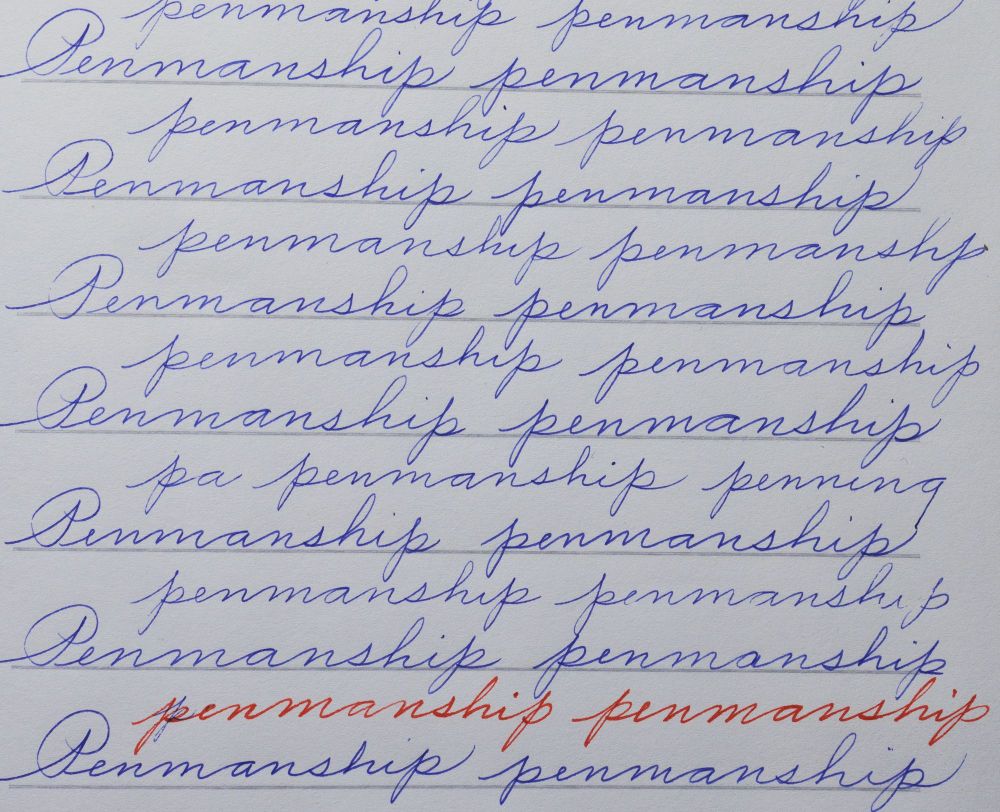 penmanship penmanship
Penmanship penmanship
penmanship penmanship
Penmanship penmanship
penmanship penmanshp
Penmanship penmanship
penmanship penmanship
Penmanship penmanship
pa penmanship penning
Penmanship penmanship
penmanship penmanship
Penmanship penmanship
penmanship penmanship
Penmanship penmanship